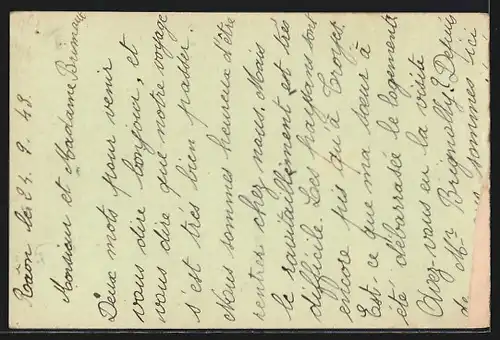 Rozon le 24. 9. 43.
Monsieur et Madame
Deux mots pour venir
vous dire bonjour, et
vous dire que notre voyage
s'est très bien passer.
Nous sommes heureux d'être
rentrer chez nous. Mais
le ravitaillement est très
difficile. Les paysans sont
encore pis qu'à Croyes.
Est ce que ma sœur à
été débarrasée le logement
Avez-vous eu la visite
de Mr Brignolly? Depuis
sommes ici